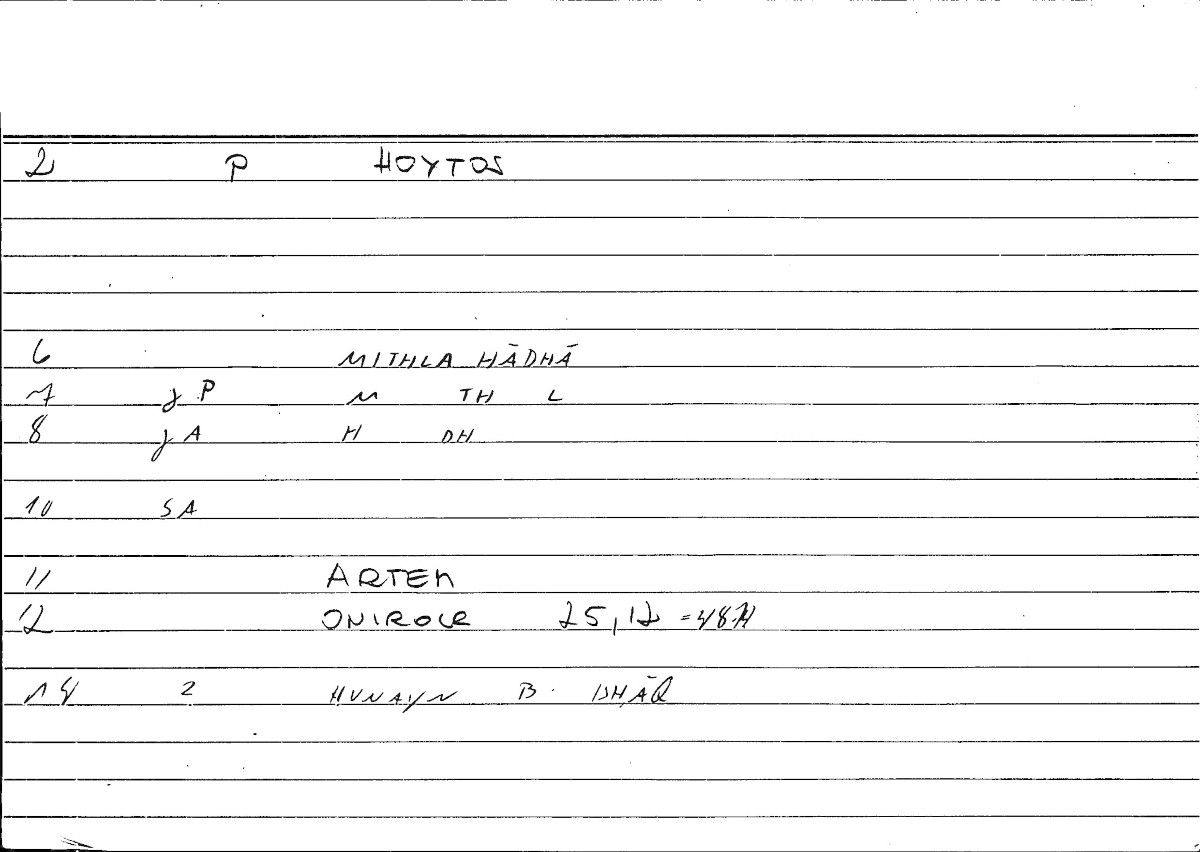 2 P HOYTOS
6 MITHLA HĀDHĀ
7 γ P M TH L
8 γ A H DH
10 SA
11 ARTEM
12 ONIROCR 25,12
14 2 HUNAYN B. ISḤĀQ